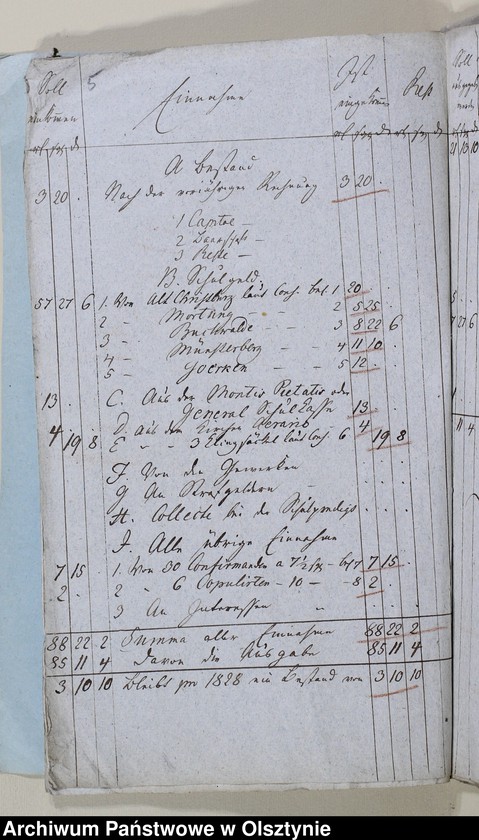 Soll
einkommen
rt sgr d
5
Einnahme
Ist
eingekommen
rt sgr d
Rest
rt sgr d
A Bestand
3 20 . Nach der vorjährigen Rechnung 3 20 .
1 Capital –
2 –
3 Reste –
B. Schulgeld.
57 27 6 1. Von Alt Christburg laut 1 20 .
2 – Mortung – – 2 5 25 .
3 – Buchwalde – 3 8 22 6
4 – Münsterberg – 4 11 10 .
5 – Goerken – 5 12 .
13 . C. Aus der Montis Pietatis oder
General Schul Casse 13 .
4 D. aus dem Kirchen Aerario 4
19 8 E – – 3 Klingsäckel laut 6 19 8
F. Von den Gewerken
G An Strafgeldern –
H. Collecte bei der
J. Alle übrige Einnahme
7 15 . 1. Von 30 Confirmanden a 7½ sgr – 7 7 15 .
2 . 2 – 6 Copulirten – 10 – – 8 2 .
3 An Interessen
88 22 2 Summa aller Einnahme 88 22 2
85 11 4 Davon die Ausgabe 85 11 4
3 10 10 bleibt pro 1828 ein Bestand von 3 10 10
Soll
21 13 10
5
7 27 6
11 4
Archiwum Państwowe w Olsztynie